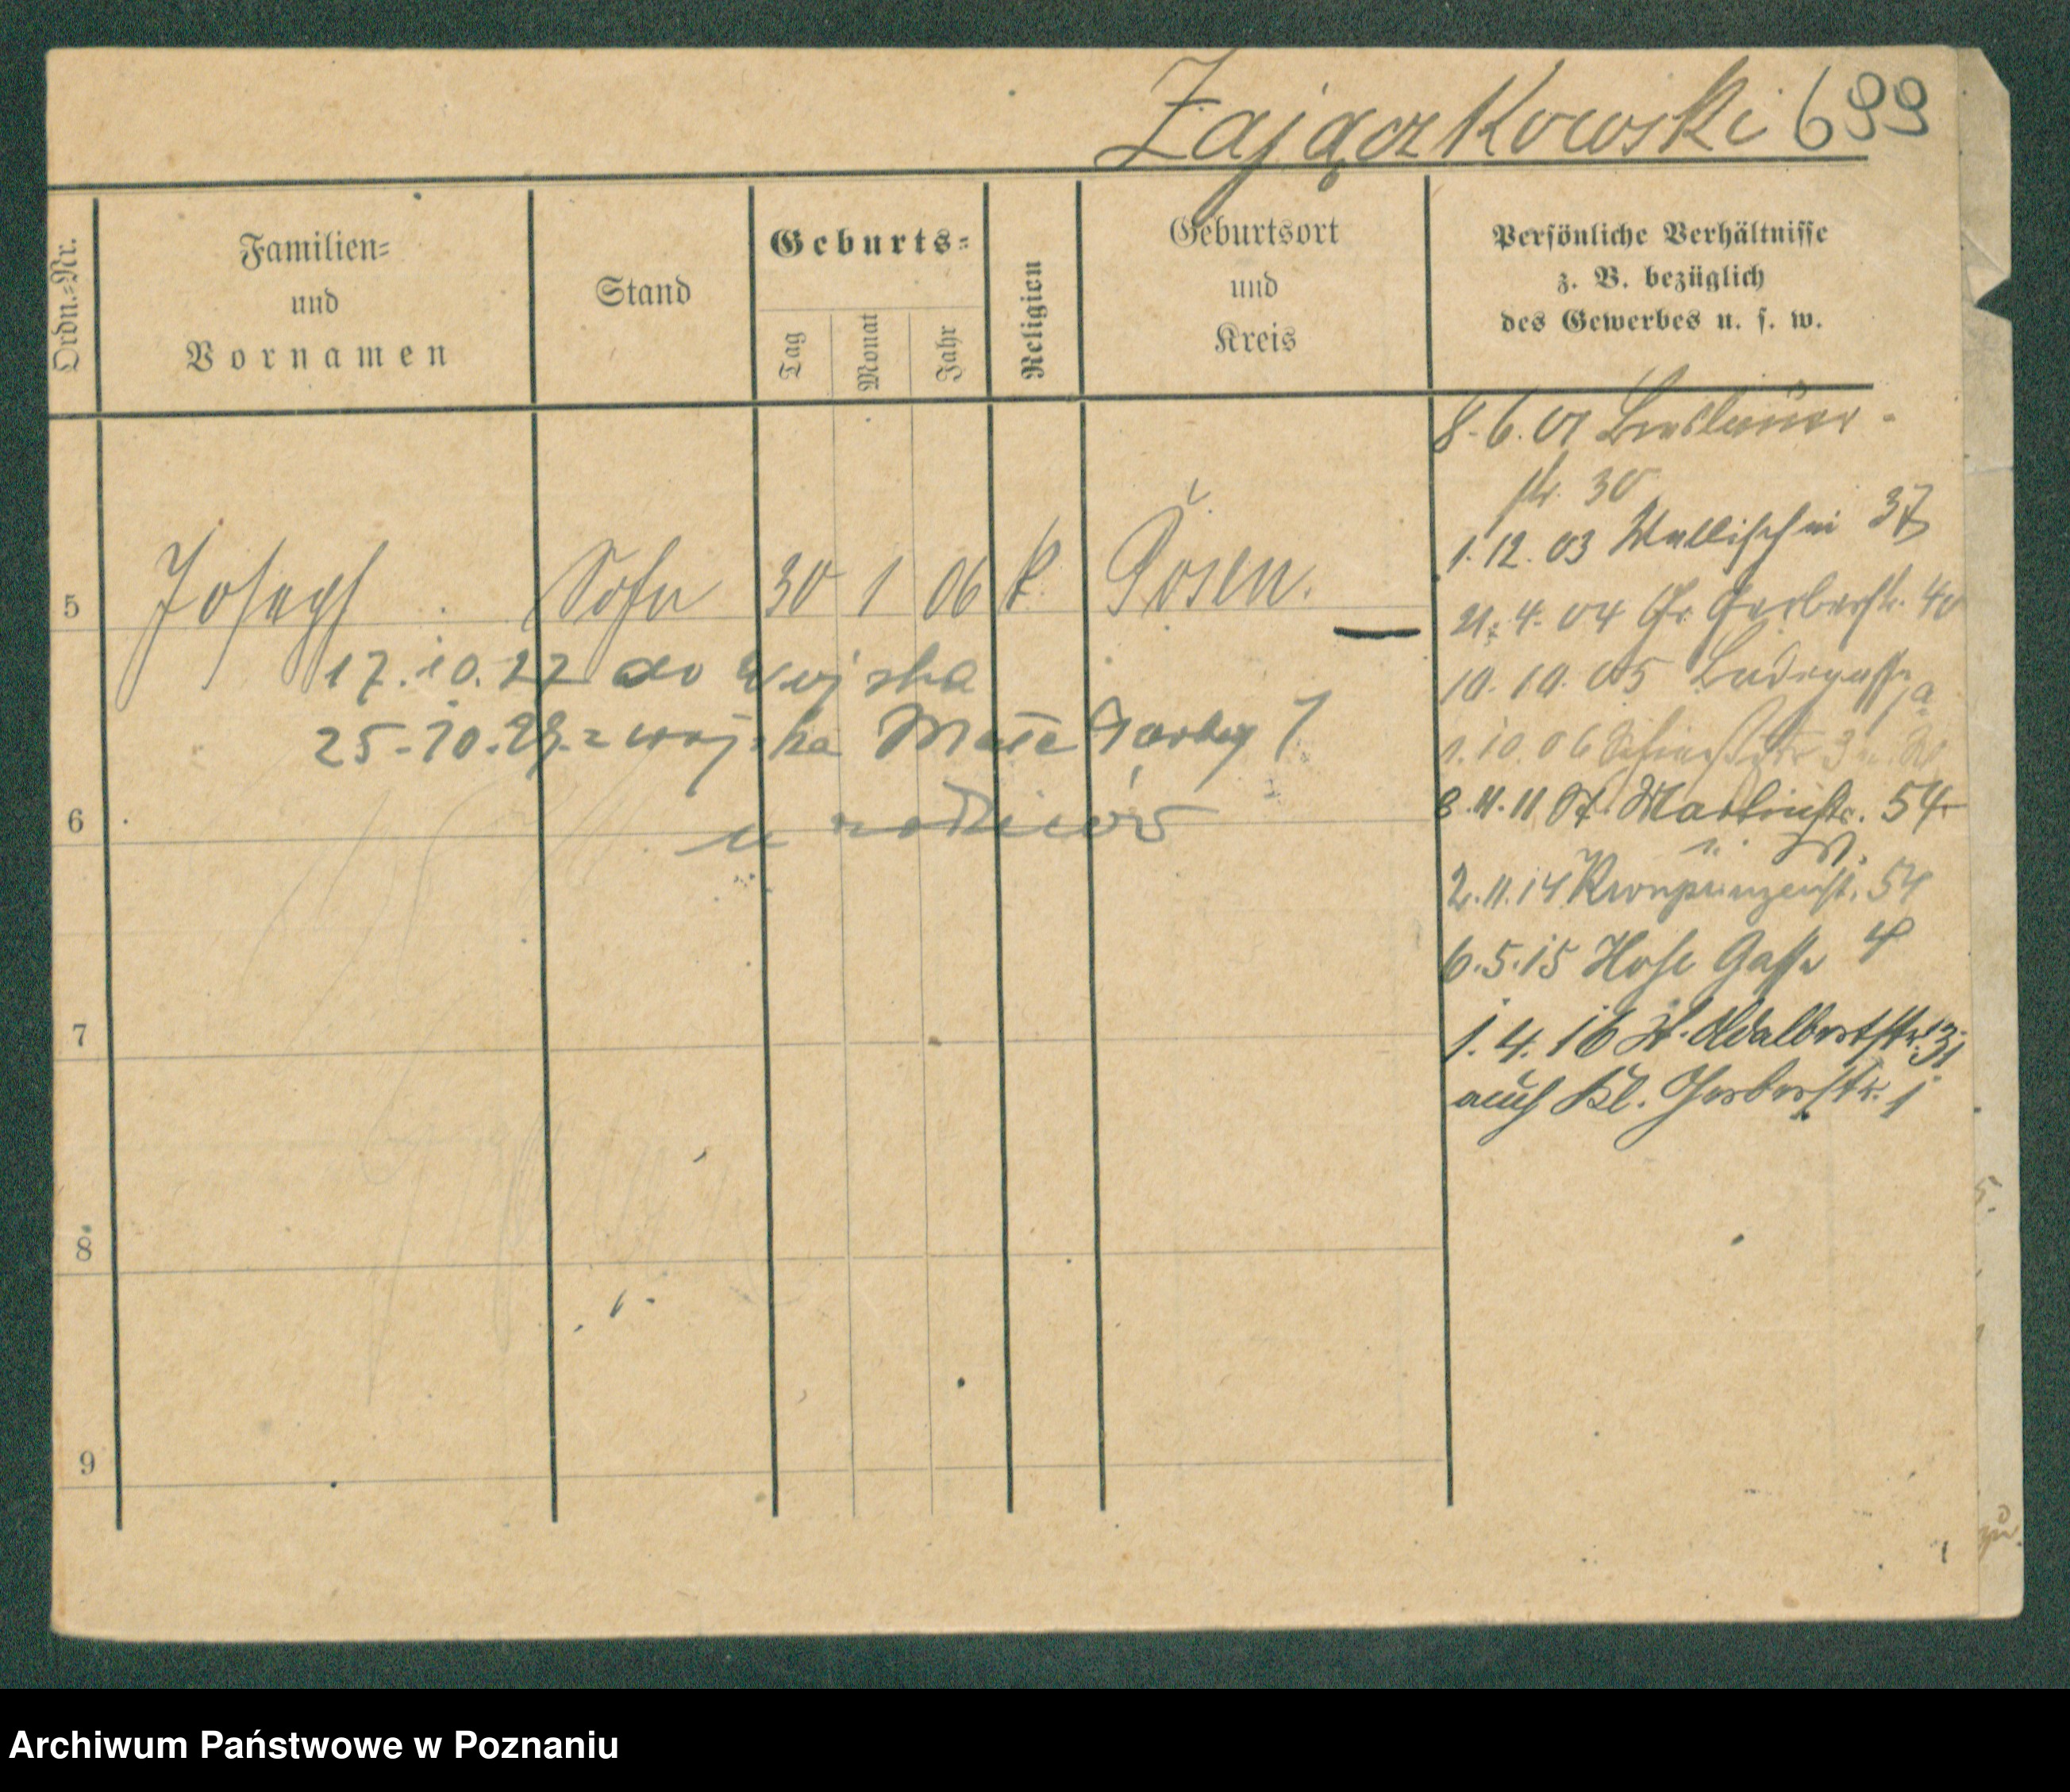 Zajączkowski 699
Ordn.-Nr.
Familien-
und
Vornamen
Stand
Geburts-
Tag
Monat
Jahr
Religion
Geburtsort
und
Kreis
Persönliche Verhältnisse
z. B. bezüglich
des Gewerbes u. s. w.
8.6.01 Breslauer-
str. 30
1.12.03 Wallischei 37
21.4.04 Gr. Gerberstr. 40
10.10.05 Badegasse
1.10.06
8.11.11 St. Martinstr. 54
2.11.14 Kronprinzenst. 54
6.5.15 Hohe Gasse 4
1.4.16 St. Adalbertstr. 31
auch Kl. Gerberstr. 1
5 Joseph Sohn 30 1 06 k. Posen.
17.10.27 do wojska
25-10.29 z wojska Małe Garbary 1
u rodziców
6
7
8
9
Archiwum Państwowe w Poznaniu